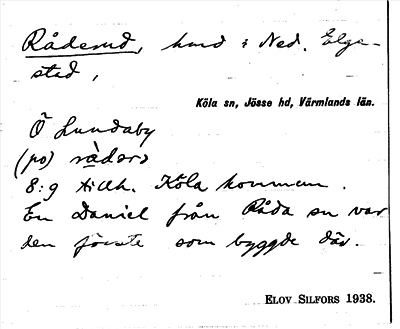 Råderud, hmd i Ned. Elge-
stad,
Köla sn, Jösse hd, Värmlands län.
Ö Lundaby
(po)
8:9 tillh. Köla kommun.
En Daniel från Råda sn var
den förste som byggde där.
ELOV SILFORS 1938.